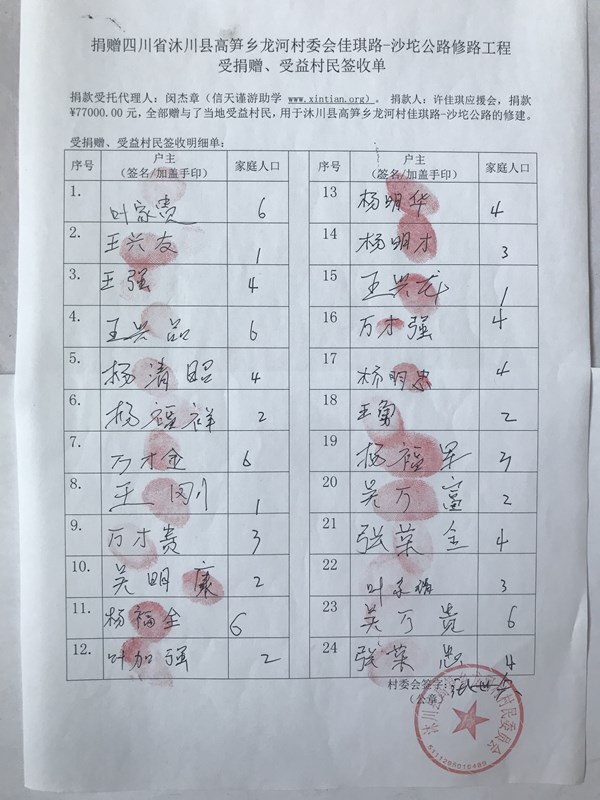 捐赠四川省沐川县高笋乡龙河村委会佳琪路-沙坨公路修路工程
受捐赠、受益村民签收单
捐款受托代理人：闵杰章（信天谨游助学 www.xintian.org）。 捐款人：许佳琪应援会，捐款
¥77000.00元，全部赠与了当地受益村民，用于沐川县高笋乡龙河村佳琪路-沙坨公路的修建。
受捐赠、受益村民签收明细单：
序号 户主（签名/加盖手印） 家庭人口
1. 叶家贵 6
2. 王兴友 1
3. 王强 4
4. 王兴品 6
5. 杨清昭 4
6. 杨福祥 2
7. 万才金 6
8. 王刚 1
9. 万才贵 3
10. 吴明康 2
11. 杨福全 6
12. 叶加强 2
序号 户主（签名/加盖手印） 家庭人口
13 杨明华 4
14 杨明才 3
15 王兴 1
16 万才强 4
17 杨明忠 4
18 王勇 2
19 杨福军 3
20 吴万富 2
21 张荣全 4
22 叶 3
23 吴万贵 6
24 张荣忠 4
村委会签字：
（公章）
沐川 村民委员会